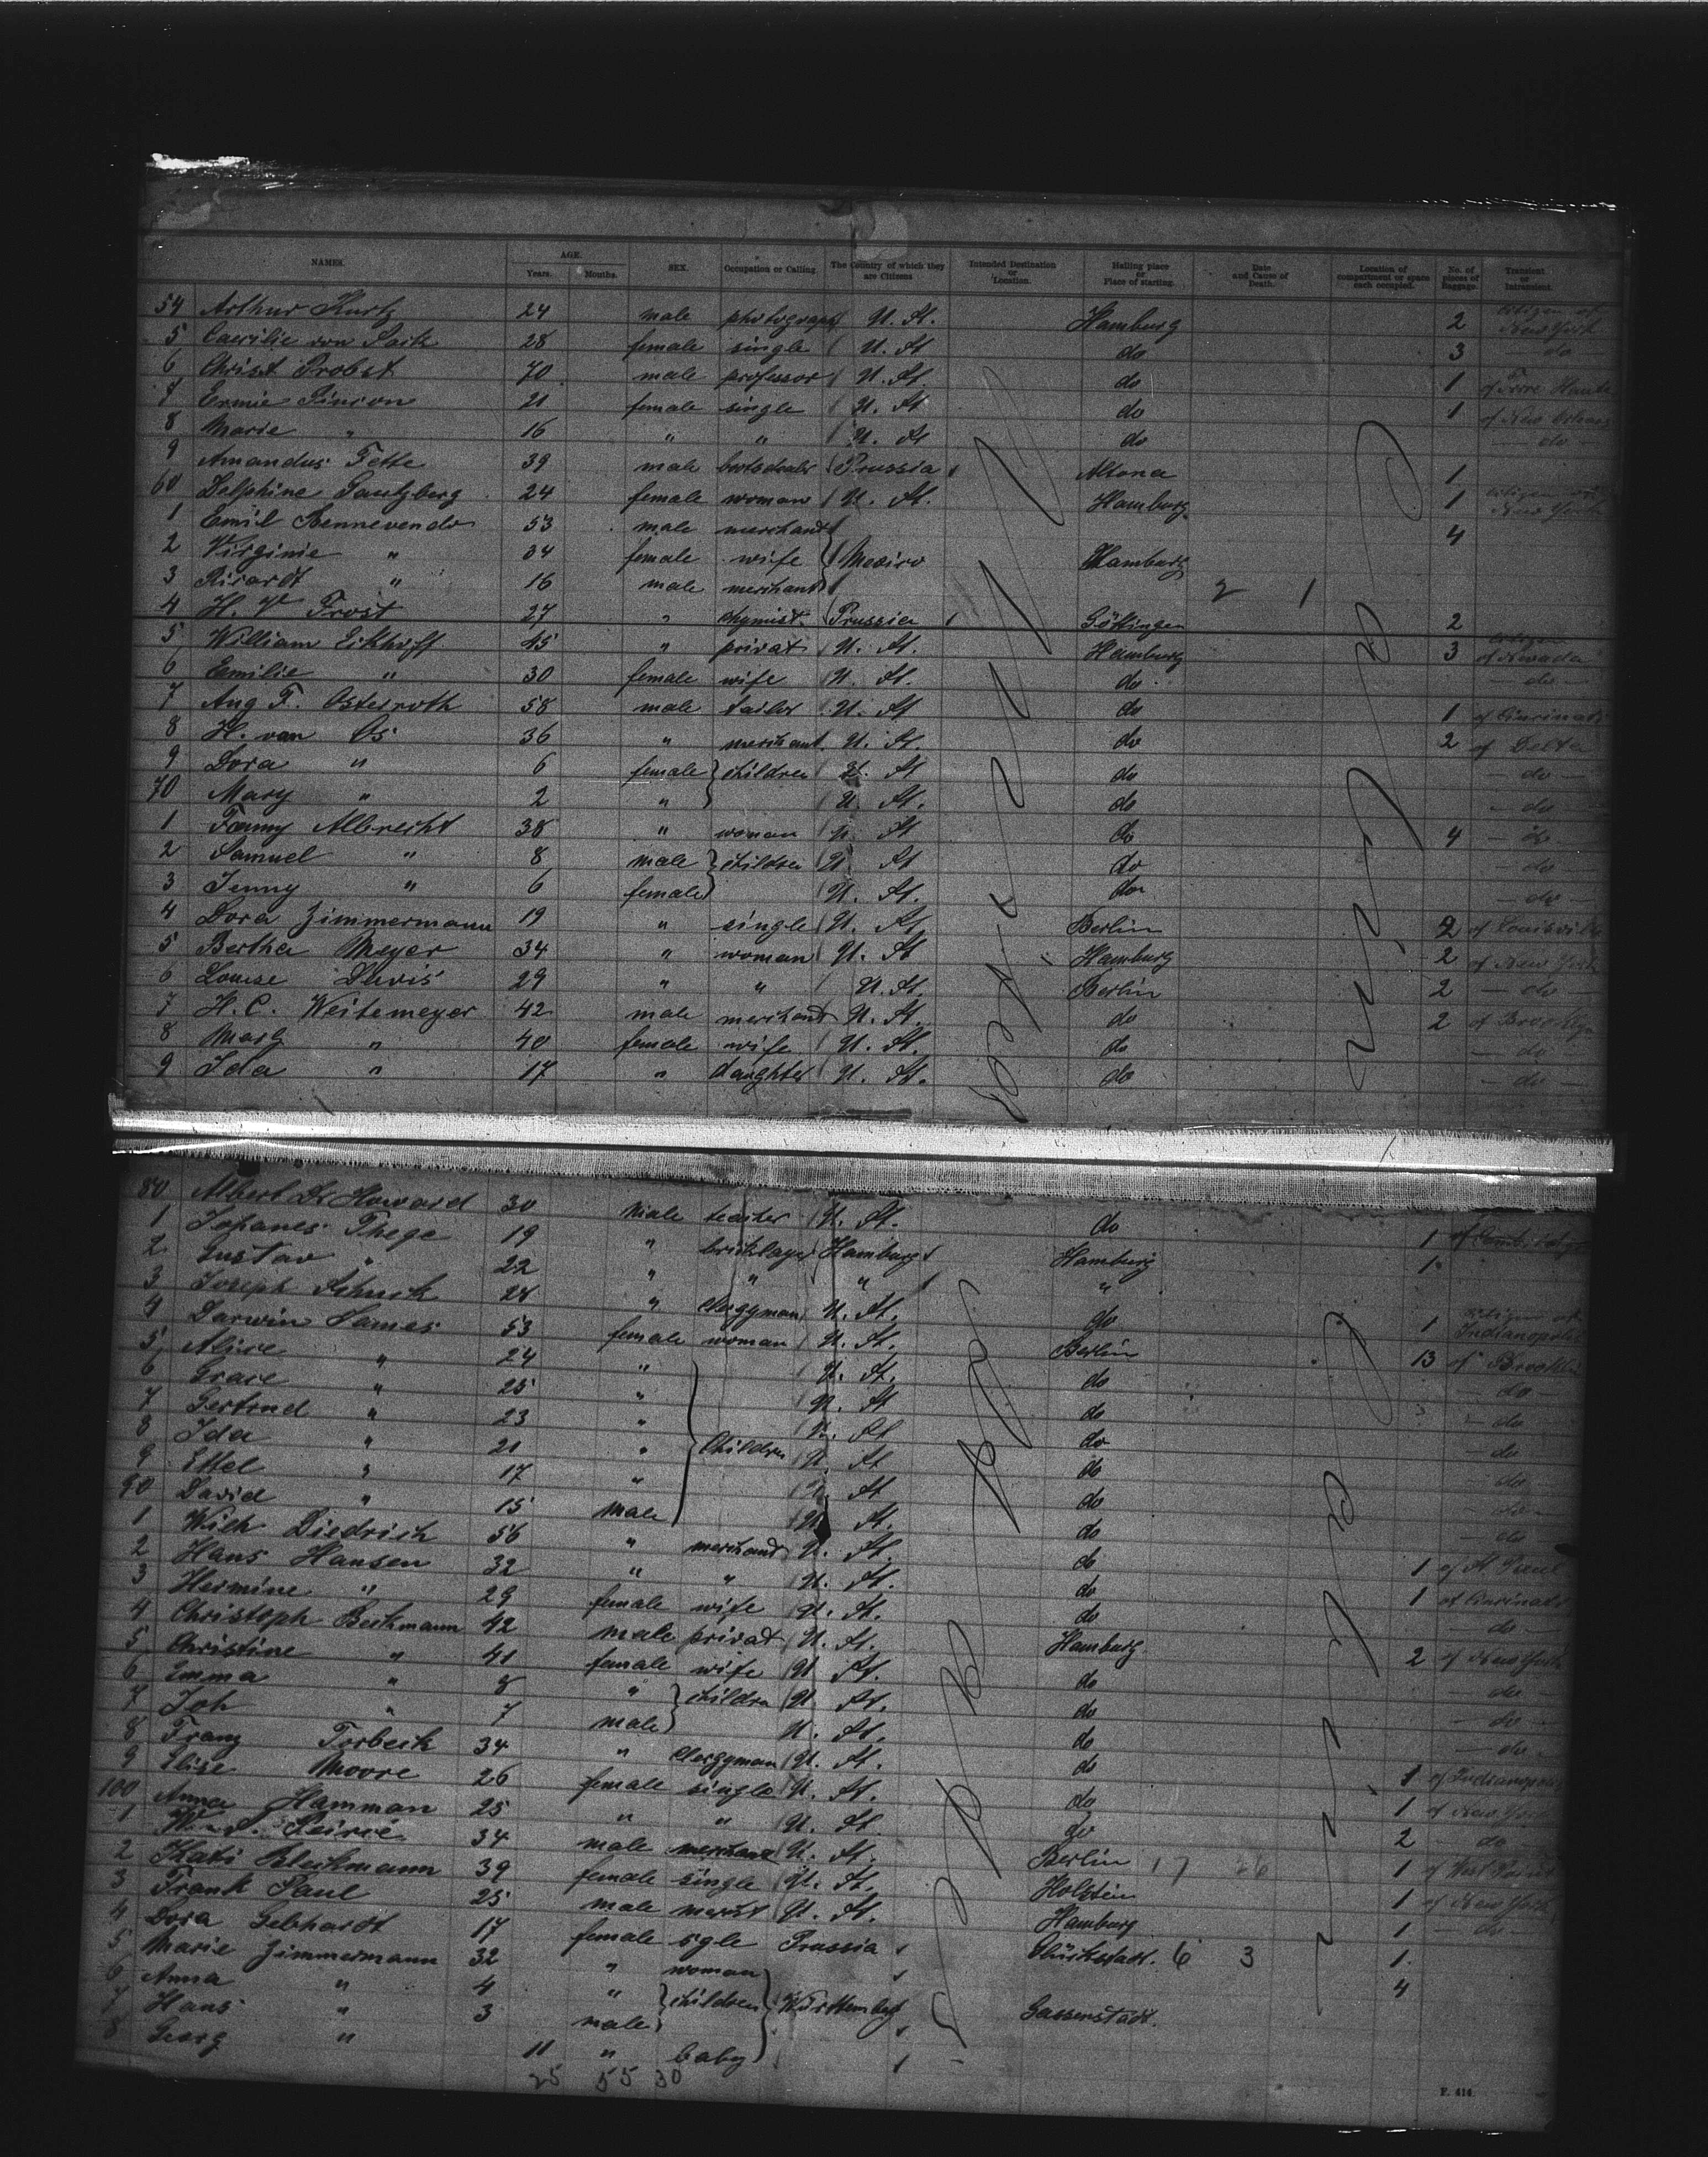 NAMES. AGE. Years. Months. SEX. Occupation or Calling. The Country of which they are Citizens Intended Destination or Location. Hailing place or Place of starting. Date and Cause of Death. Location of compartment or space each occupied. No. of pieces of Baggage. Transient or Intransient.
54 Arthur Kurtz 24 male photograph U. St. Hamburg 2 citizen of New York
5 Caecilie von 28 female single U. St do 3 — do —
6 Christ Probst 70 male professor U. St. do 1 of Terre Haute
7 Ermie 21 female single U. St do 1 of New Orleans
8 Marie " 16 " " U. St do — do —
9 Amandus Fette 39 male Prussia Altona 1
60 Delphine 24 female woman U. St. Hamburg 1 citizen of New York
1 Emil Bennevendo 53 male merchant 4
2 Virginie " 34 female wife Mexico Hamburg
3 Ricardt " 16 male merchant 2 1
4 H. V Frost 27 " chymist Prussia Göttingen 2
5 William Eikhoff 45 " privat U. St. Hamburg 3 citizen of Nevada
6 Emilie " 30 female wife U. St. do — do —
7 Aug F. Osterroth 58 male tailor U. St do 1 of Cincinati
8 H. van Os 36 " merchant U. St. do 2 of Delta
9 Dora " 6 female children U. St do — do —
70 Mary " 2 " U. St. do — do —
1 Fanny Albrecht 38 " woman U St do 4 — do —
2 Samuel " 8 male children U. St do — do —
3 Jenny " 6 female U. St. do — do —
4 Dora Zimmermann 19 " single U. St. Berlin 2 of Louisville
5 Bertha Meyer 34 " woman U. St Hamburg 2 of New York
6 Louise Davis 29 " " U. St. Berlin 2 — do —
7 H. C. Weitemeyer 42 male merchant U. St. do 2 of Brooklyn
8 Marg " 40 female wife U. St. do — do —
9 Ida " 17 " daughter U. St. do — do —
80 Albert Dr Howard 30 male teacher U. St. do 1
1 Johanes Thege 19 " bricklayer Hamburg Hamburg 1
2 Gustav " 22 " " " "
3 Joseph Schuck 28 " Clergyman U. St. do 1 citizen of Indianopolis
4 Darwin James 53 female woman U. St. Berlin 13 of Brooklin
5 Alice " 24 " U. St. do — do —
6 Grace " 25 " U. St do — do —
7 Gertrud " 23 " U. St do do
8 Ida " 21 " Children U. St do — do —
9 Ettel " 17 " U. St do — do —
90 David " 15 male U. St. do — do
1 Wilh Diedrich 56 " merchant U. St. do 1 of St. Paul
2 Hans Hansen 32 " " U. St. do 1 of Cincinati
3 Hermine " 29 female wife U. St. do — do —
4 Christoph Beckmann 42 male privat U. St. Hamburg 2 of New York
5 Christine " 41 female wife U St. do — do —
6 Emma " 8 " children U. St. do — do —
7 Joh " 7 male U. St. do — do —
8 Franz Torbeck 34 " Clergyman U. St. do 1 of Indianopolis
9 Elise Moore 26 female single U. St. do 1 of New York
100 Anna Hamman 25 " " U. St do 2 — do
1 34 male merchant U. St. Berlin 17 1 of West Point
2 Kati Bleckmann 39 female single U. St. Holstein 1 of New York
3 Frank Paul 25 male mercht U. St. Hamburg 1 — do —
4 Dora Gebhardt 17 female sgle Prussia Glückstadt. 6 3 1
5 Marie Zimmermann 32 " woman 4
6 Anna " 4 " children Württemberg Gassenstadt.
7 Hans " 3 male
8 Georg " 11 " baby
25 55 30
F. 414.